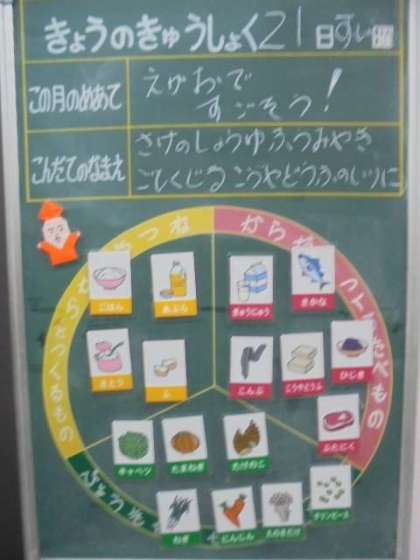 きょうのきゅうしょく21日すい曜
この月のめあて
えがおで
すごそう!
こんだてのなまえ
さけのしょうゆふうみやき
ごもくじる こうやどうふのいりに
ごはん
あぶら
ぎゅうにゅう
さかな
さとう
ふ
こんぶ
こうやどうふ
ひじき
ぶたにく
キャベツ
たまねぎ
たけのこ
ねぎ
にんじん
えのきだけ
グリンピース